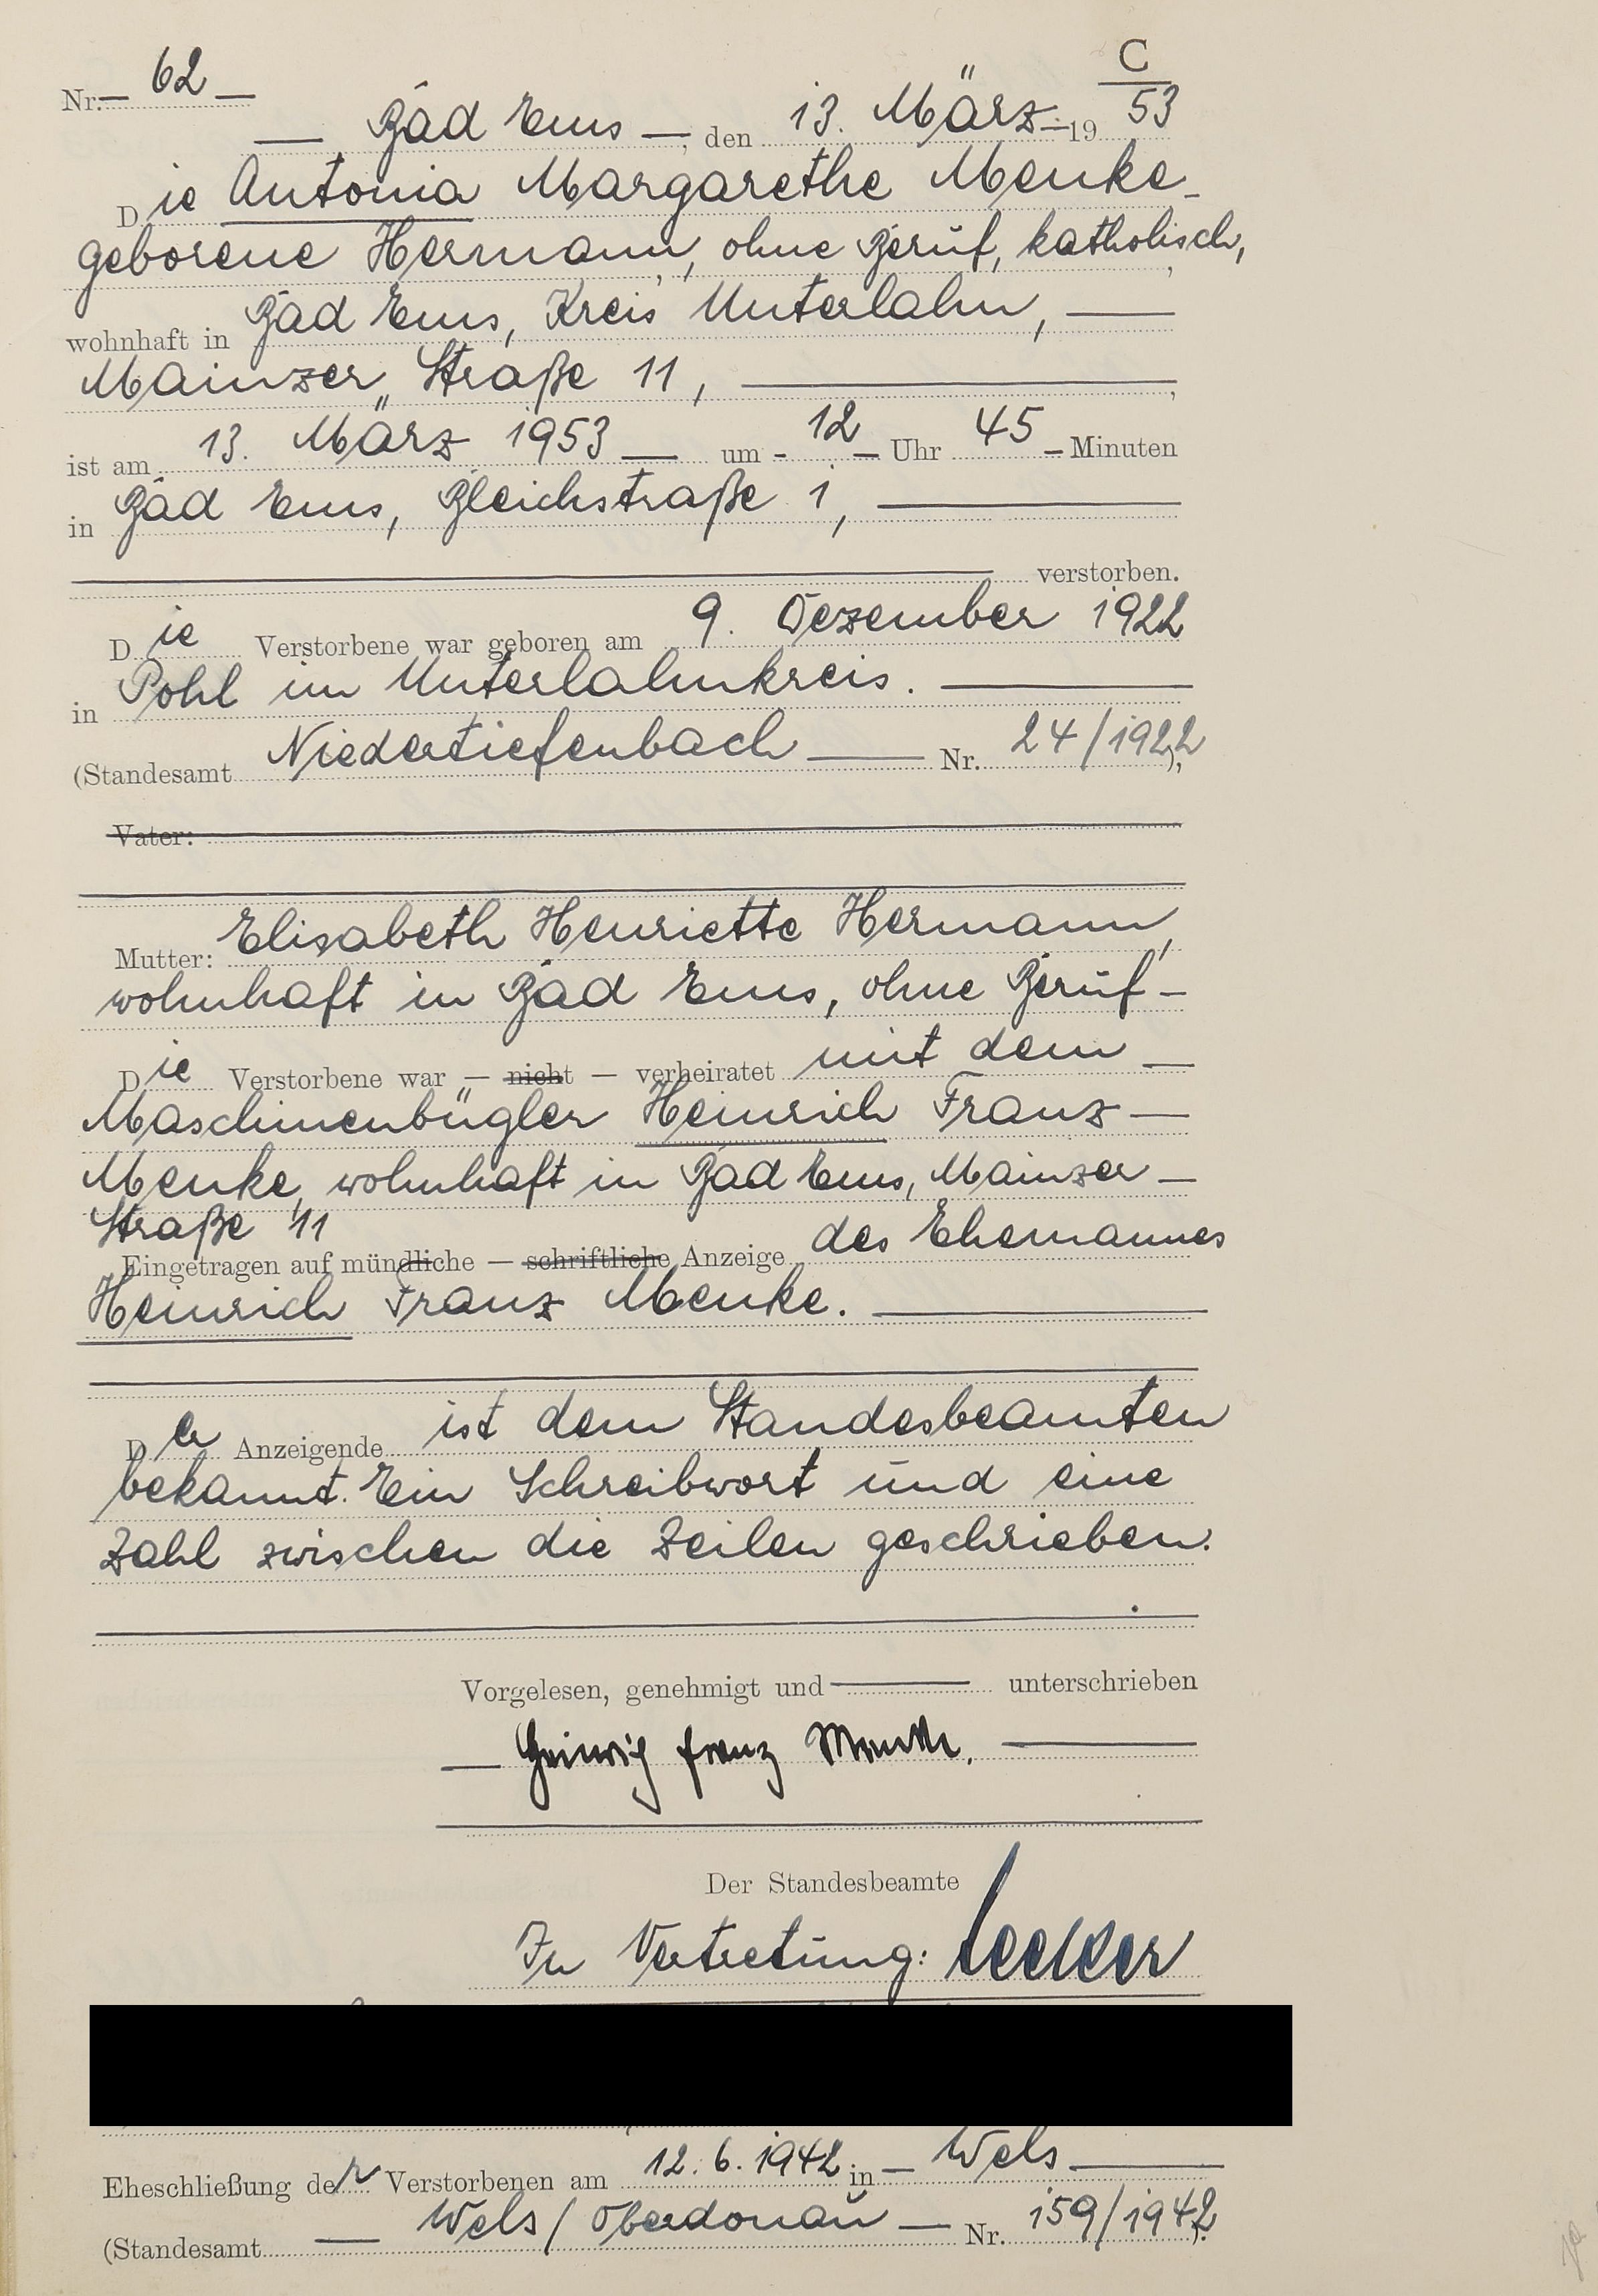 C
Nr. 62
Bad Ems, den 13. März 1953
Die Antonia Margarethe Menke
geborene Hermann, ohne Beruf, katholisch,
wohnhaft in Bad Ems, Kreis Unterlahn,
Mainzer Straße 11,
ist am 13. März 1953 um 12 Uhr 45 Minuten
in Bad Ems, Bleichstraße 1,
verstorben.
Die Verstorbene war geboren am 9. Dezember 1922
in Pohl im Unterlahnkreis.
(Standesamt Niedertiefenbach Nr. 24/1922),
Vater:
Mutter: Elisabeth Henriette Hermann,
wohnhaft in Bad Ems, ohne Beruf
Die Verstorbene war – nicht – verheiratet mit dem
Maschinenbügler Heinrich Franz
Menke, wohnhaft in Bad Ems, Mainzer
Straße 11
Eingetragen auf mündliche – schriftliche Anzeige des Ehemannes
Heinrich Franz Menke.
Der Anzeigende ist dem Standesbeamten
bekannt. Ein Schreibwort und eine
Zahl zwischen die Zeilen geschrieben.
Vorgelesen, genehmigt und unterschrieben
Heinrich Franz Menke.
Der Standesbeamte
In Vertretung:
Eheschließung der Verstorbenen am 12.6.1942 in Wels
(Standesamt Wels/Oberdonau Nr. 159/1942).